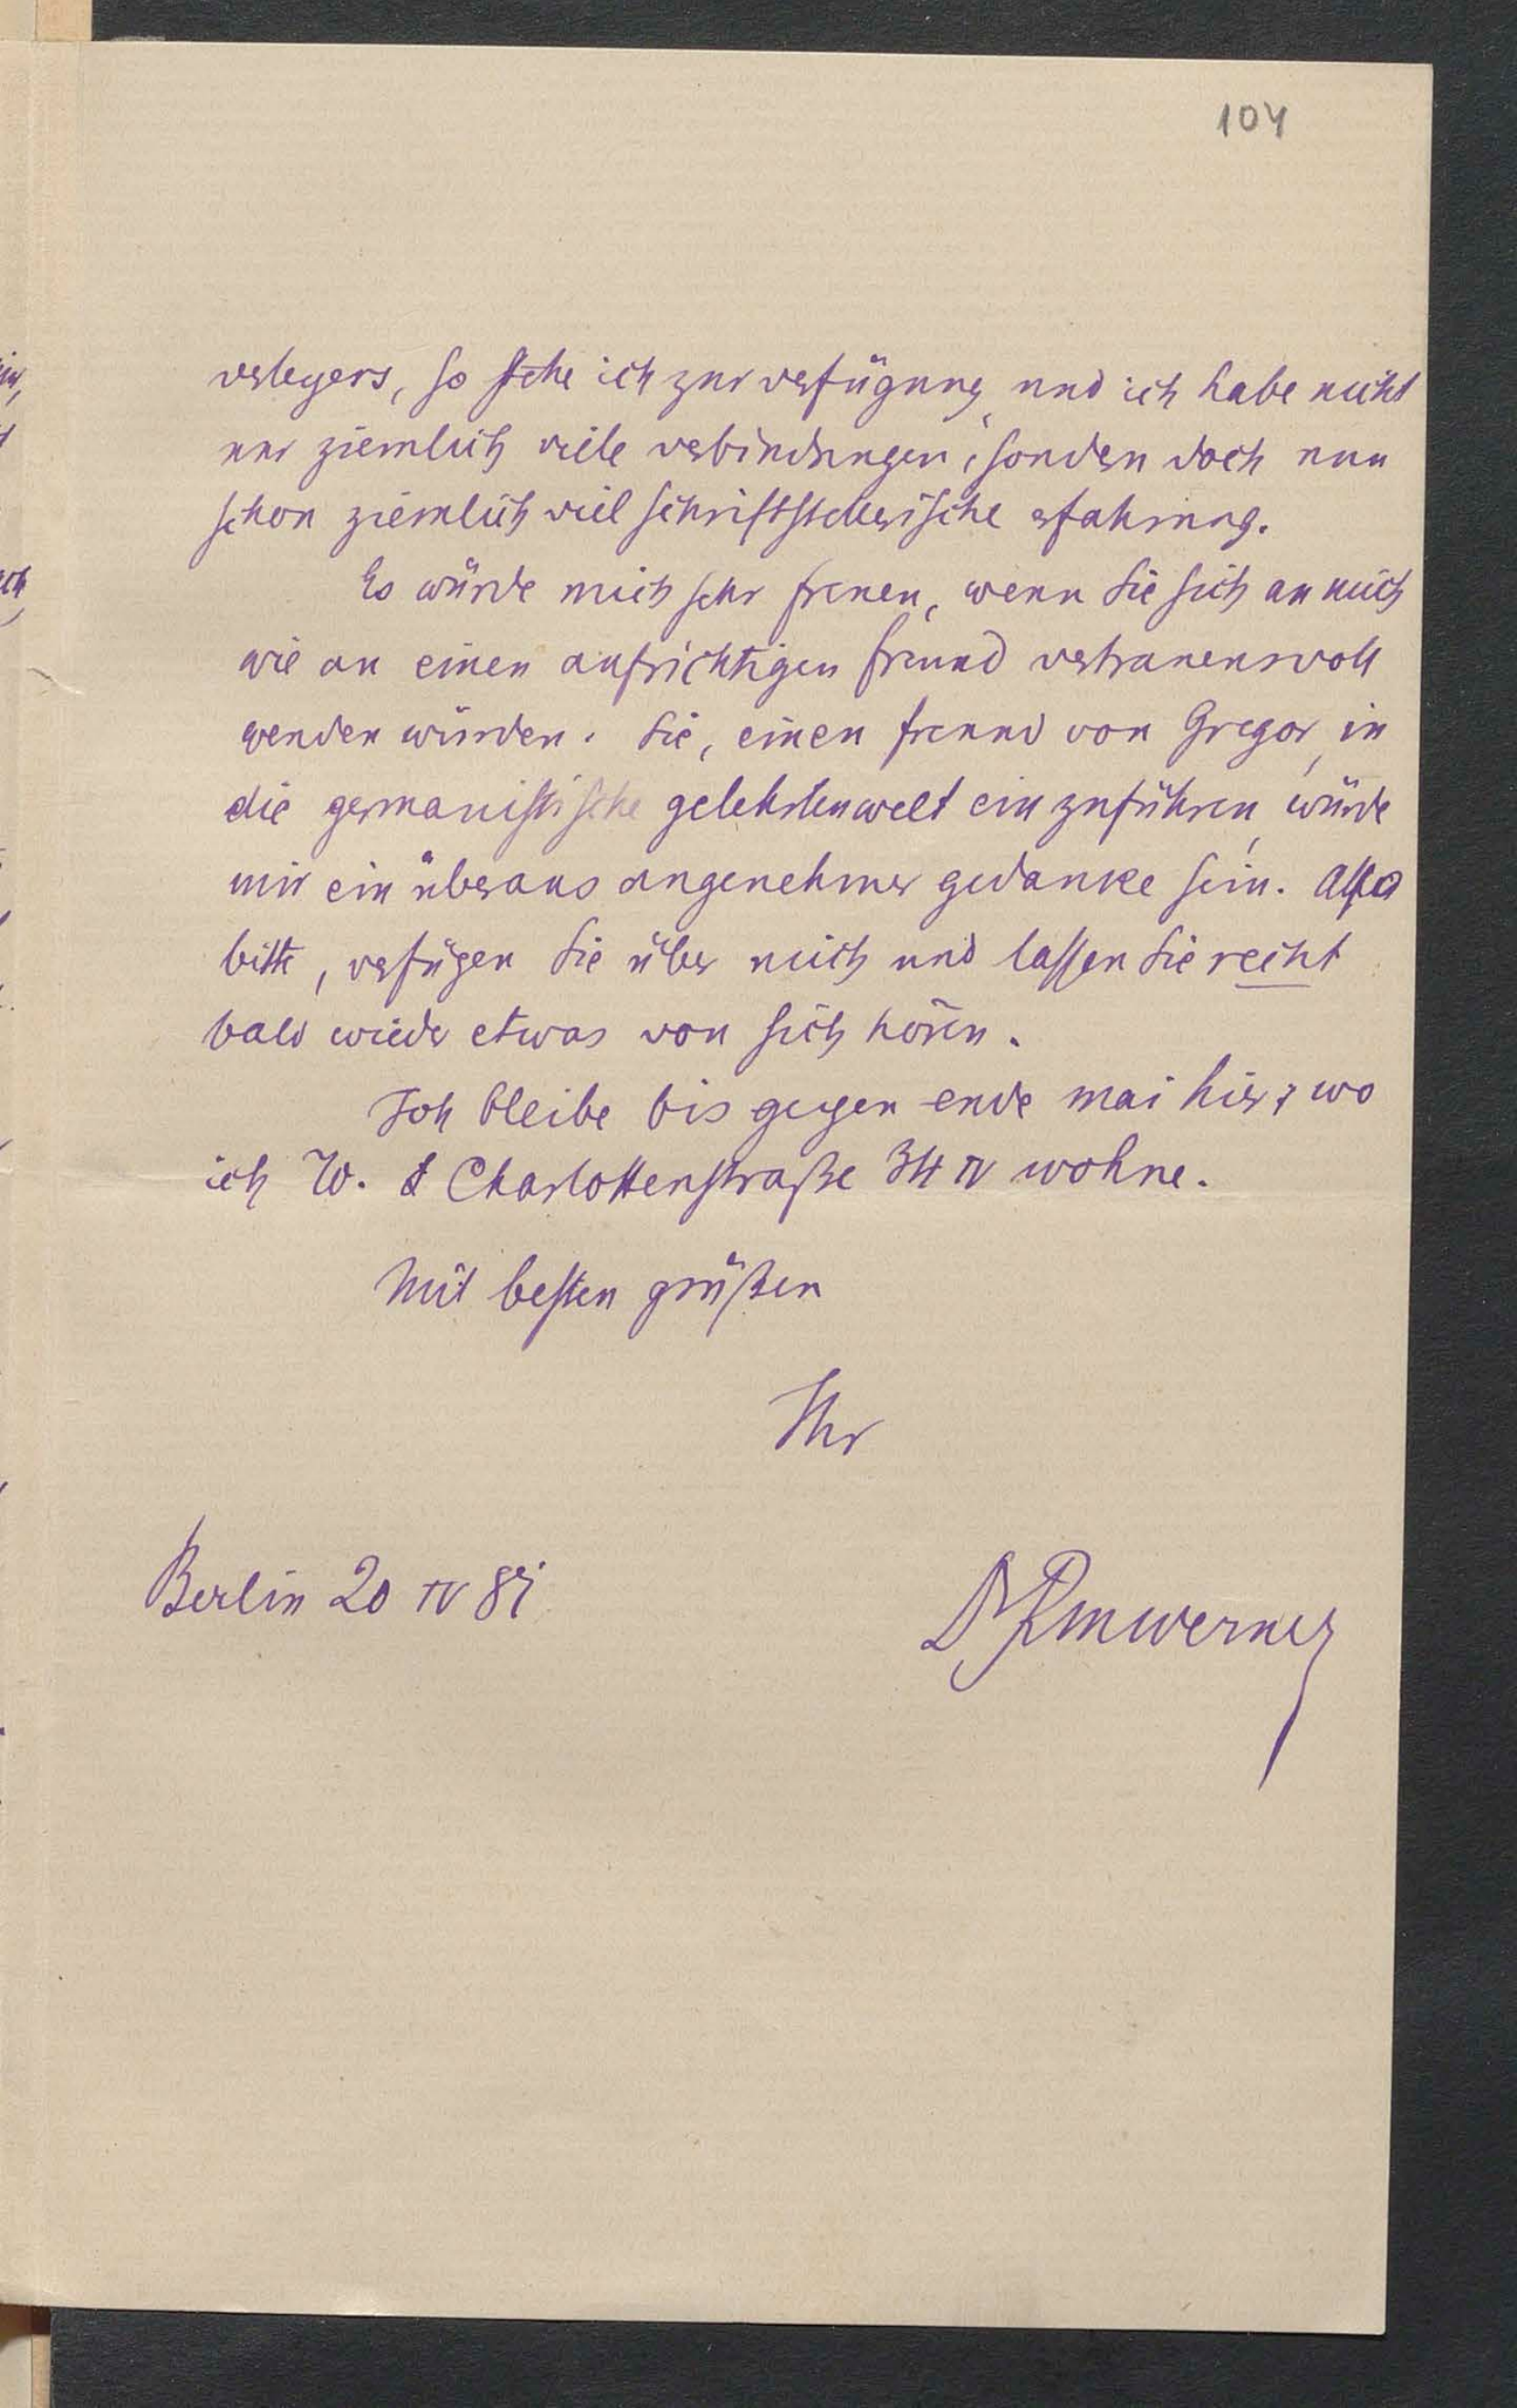 104
verlegers, so stehe ich zur verfügung, und ich habe nicht
nur ziemlich viele verbindungen, sondern doch nun
schon ziemlich viel schriftstellerische erfahrung.
Es würde mich sehr freuen, wenn Sie sich an mich
wie an einen aufrichtigen freund vertrauensvoll
wenden würden. Sie, einen freund von Gregor, in
die germanistische gelehrtenwelt einzuführen, würde
mir ein überaus angenehmer gedanke sein. Also
bitte, verfügen Sie über mich und lassen Sie recht
bald wieder etwas von sich hören.
Ich bleibe bis gegen ende mai hier, wo
ich W. Charlottenstraße 34 IV wohne.
Mit besten grüßen
Ihr
Berlin 20 IV 81
Dr RMWerner